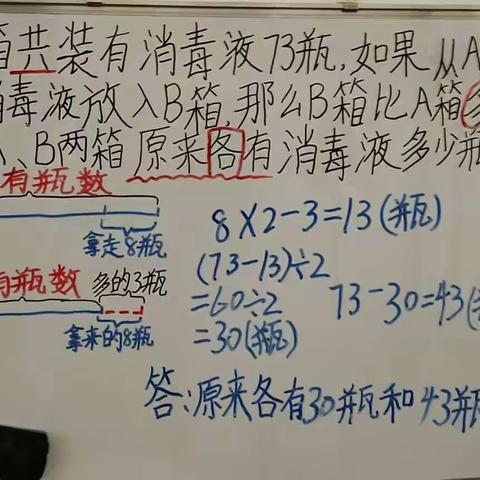 箱共装有消毒液73瓶,如果从A
消毒液放入B箱,那么B箱比A箱多
A、B两箱原来各有消毒液多少瓶
有瓶数
拿走8瓶
有瓶数 多的3瓶
拿来的8瓶
8×2-3=13(瓶)
(73-13)÷2
=60÷2
=30(瓶)
73-30=43(
答:原来各有30瓶和43瓶